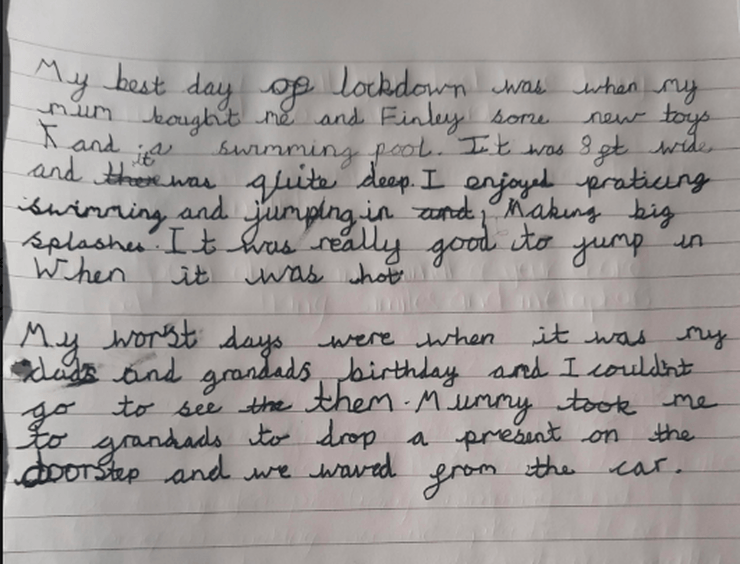 My best day of lockdown was when my
mum bought me and Finley some new toys
and a swimming pool. It was 8 ft wide
and it was quite deep. I enjoyed praticing
swimming and jumping in, Making big
splashes. It was really good to jump in
When it was hot
My worst days were when it was my
dads and grandads birthday and I couldn't
go to see them. Mummy took me
to grandads to drop a present on the
doorstep and we waved from the car.